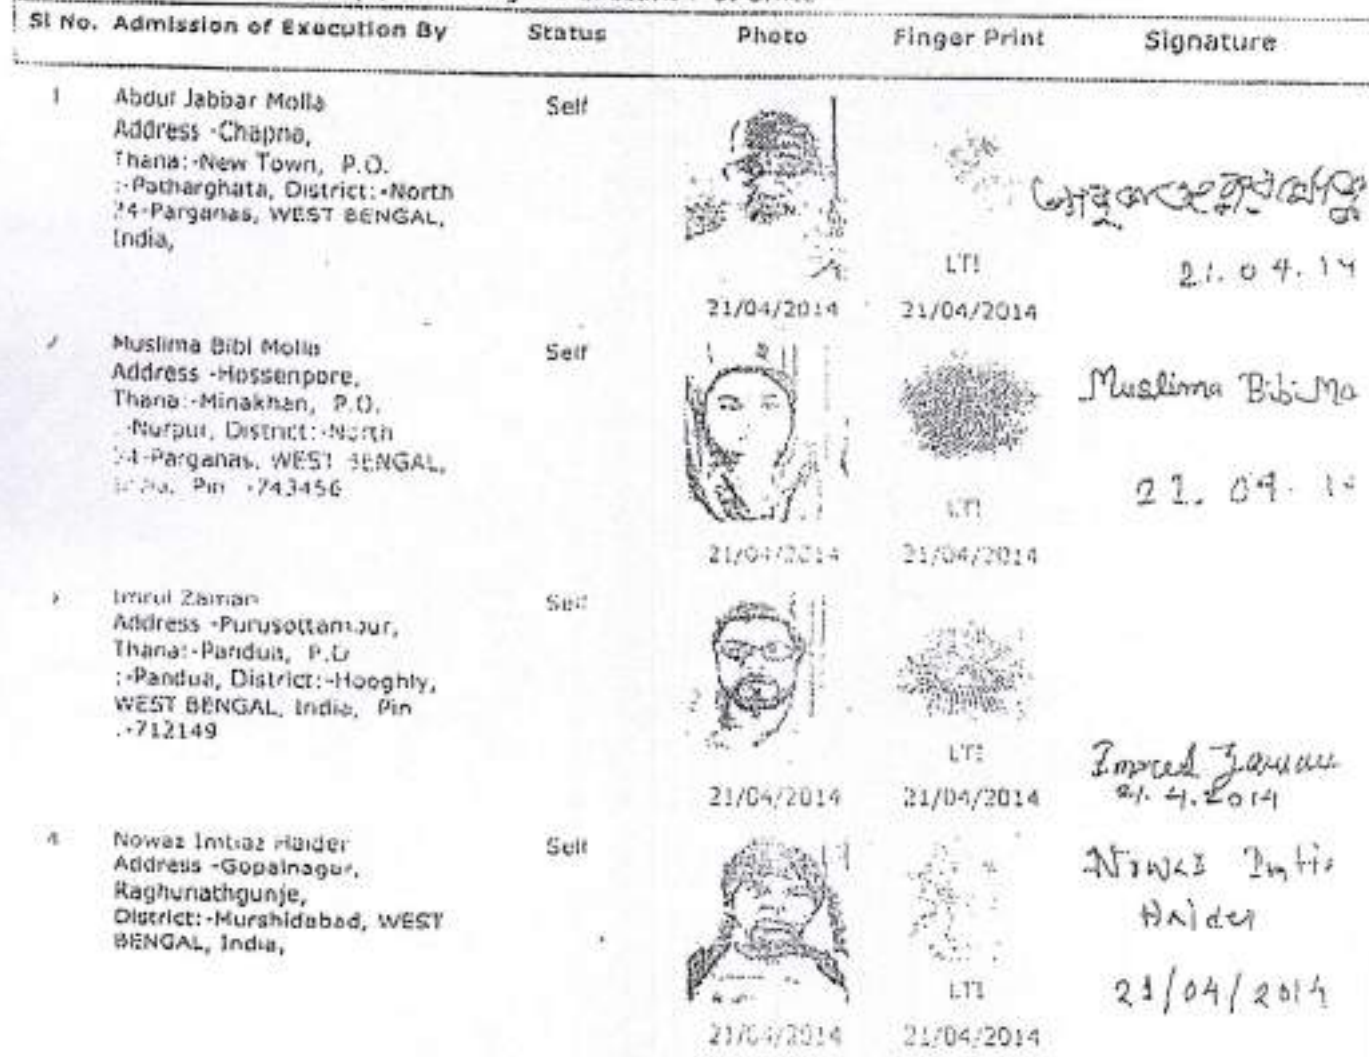 Sl No. Admission of Execution By Status Photo Finger Print Signature
1 Abdul Jabbar Molla Self
Address -Chapna,
Thana:-New Town, P.O.
:-Patharghata, District:-North
24-Parganas, WEST BENGAL,
India,
LTI
21.04.14
21/04/2014 21/04/2014
2 Muslima Bibi Molla Self
Address -Hossenpore,
Thana:-Minakhan, P.O.
:-Nurpur, District:-North
24-Parganas, WEST BENGAL,
India, Pin :-743456
Muslima Bibi Mo
21.04.14
LTI
21/04/2014 21/04/2014
3 Imrul Zaman Self
Address -Purusottampur,
Thana:-Pandua, P.O
:-Pandua, District:-Hooghly,
WEST BENGAL, India, Pin
:-712149
LTI
Zaman
21.4.2014
21/04/2014 21/04/2014
4 Nowaz Imtiaz Haider Self
Address -Gopalnagar,
Raghunathgunje,
District:-Murshidabad, WEST
BENGAL, India,
Nowaz Imtia
Haider
LTI
21/04/2014
21/04/2014 21/04/2014